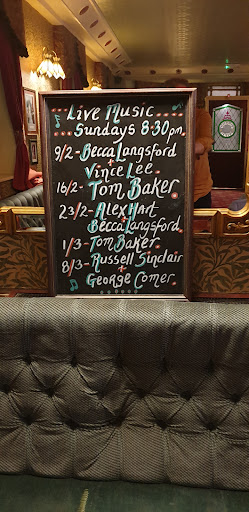 Live Music
Sundays 8·30pm.
9/2- Becca Langsford
+
Vince Lee.
16/2- Tom Baker
23/2- Alex Hart
+
Becca Langsford
1/3- Tom Baker
8/3- Russell Sinclair
+
George Comer